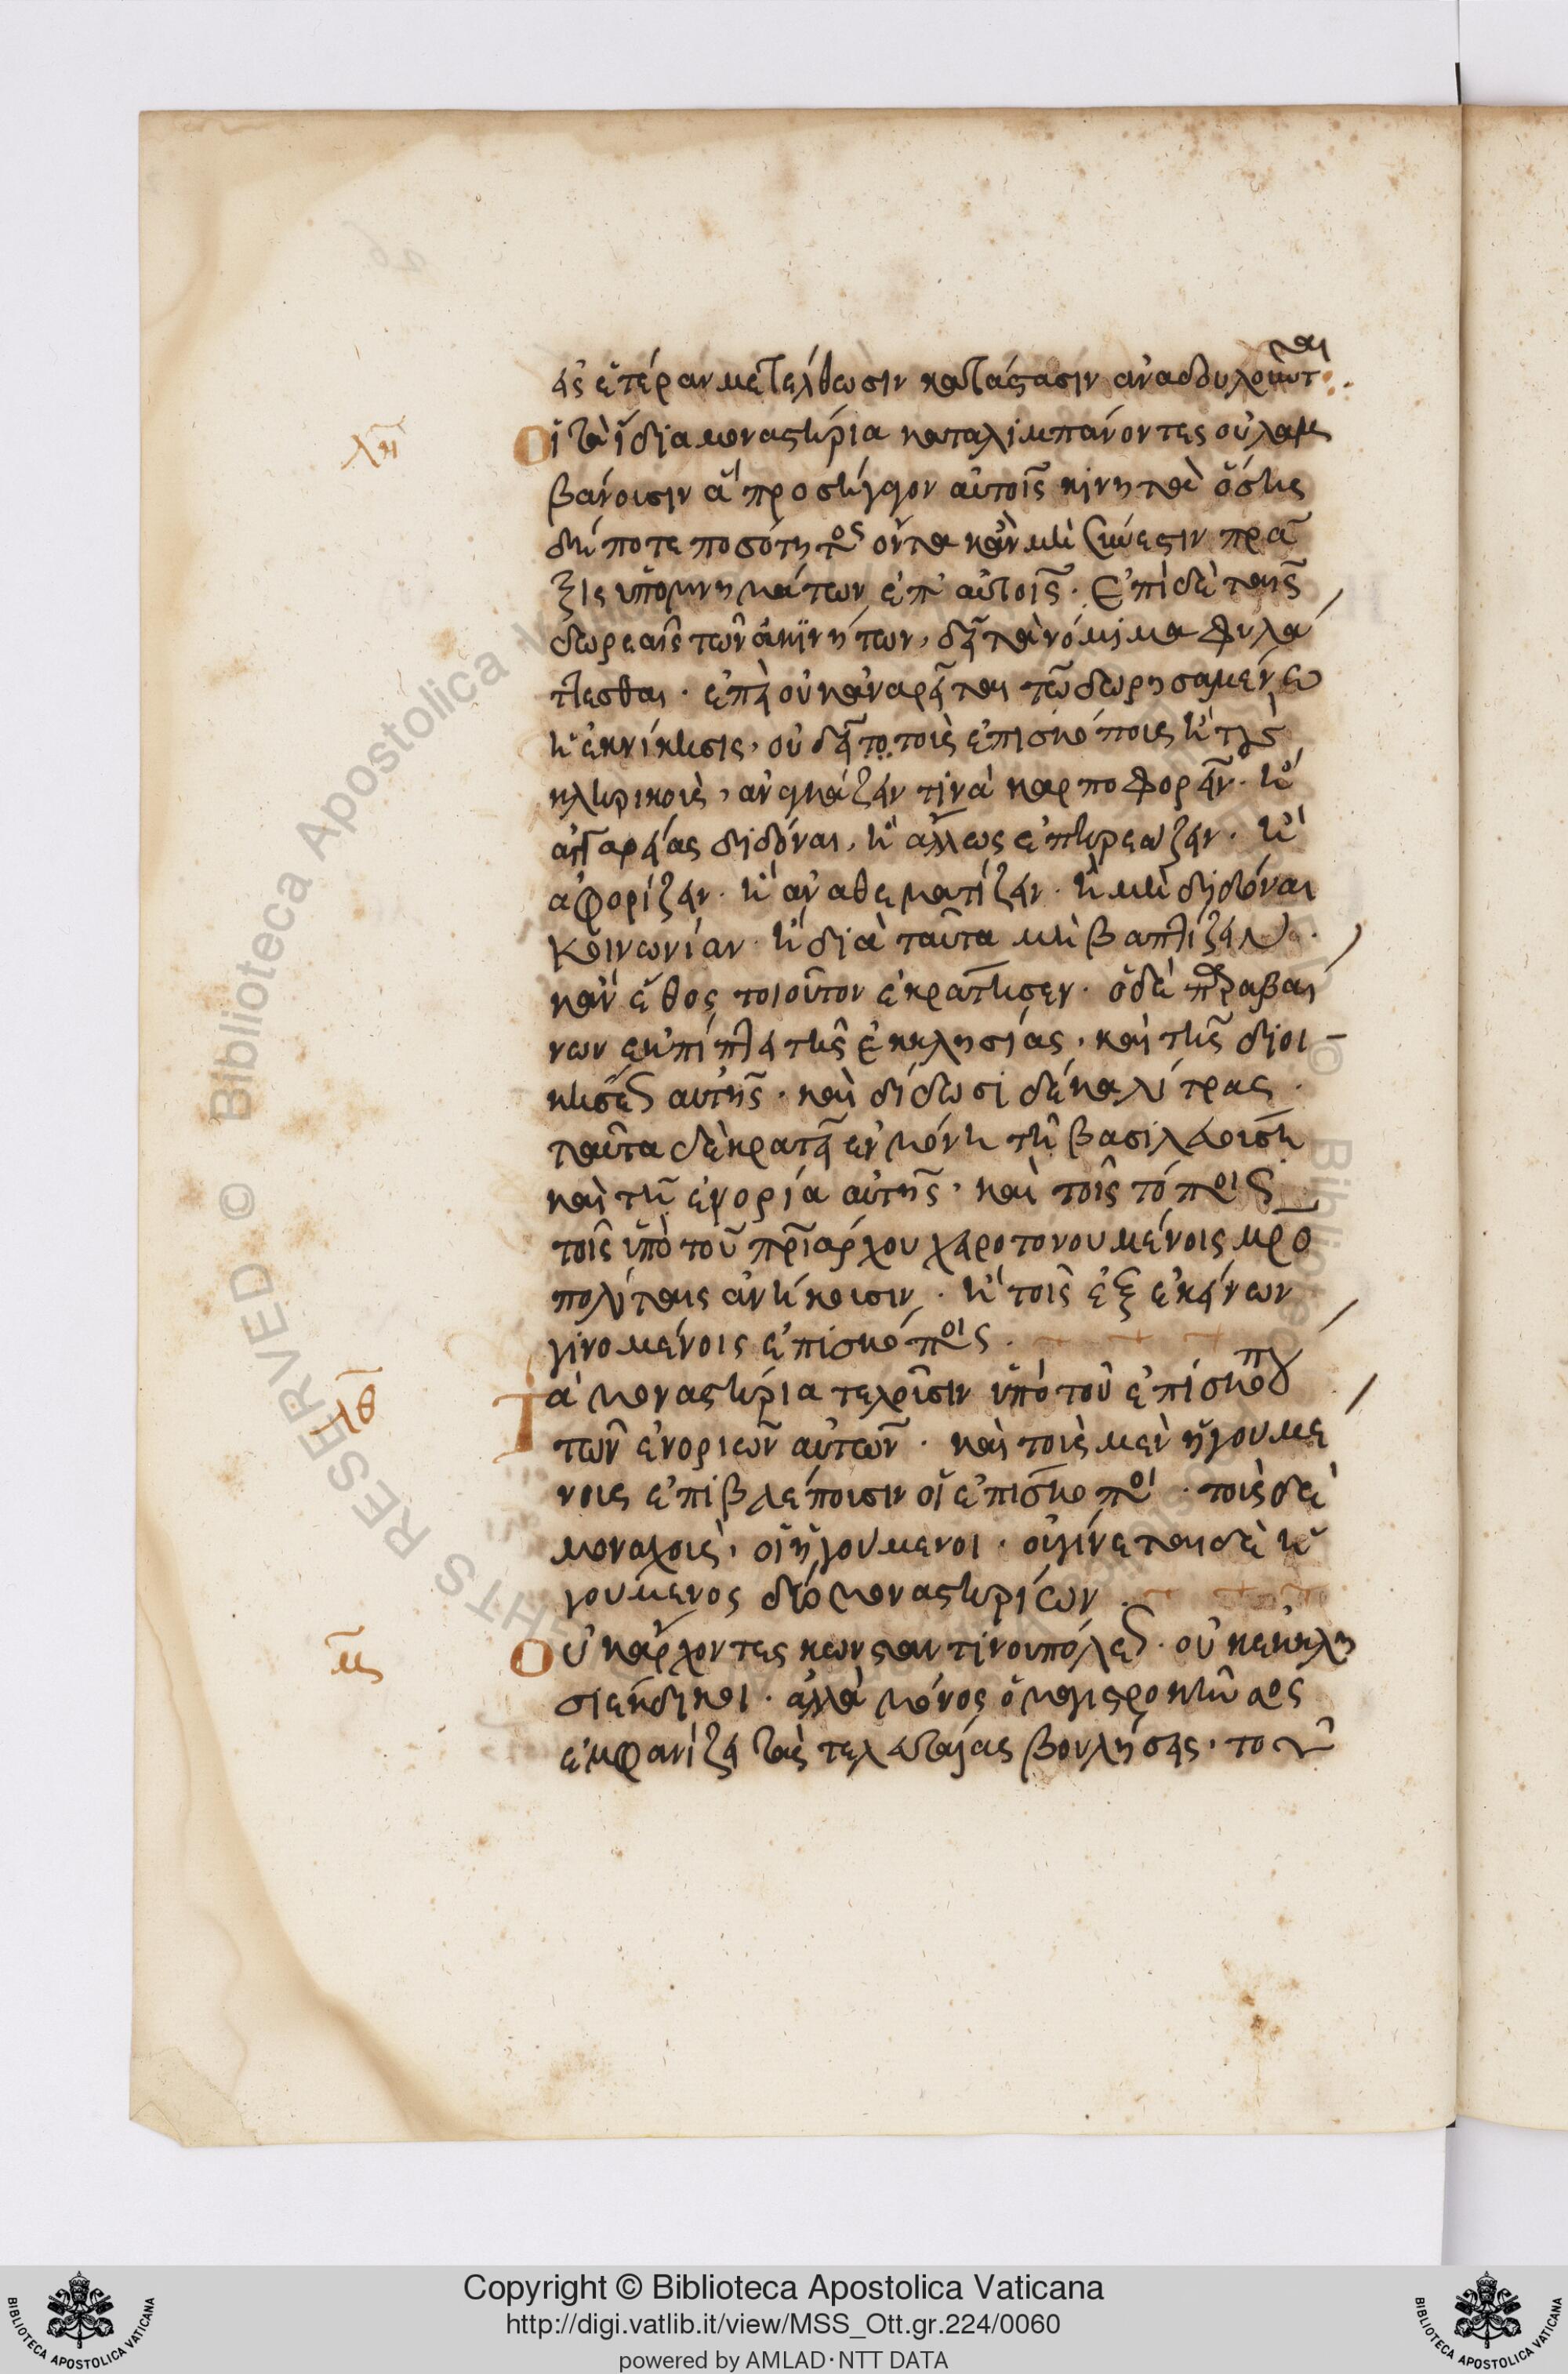 εἰς ἑτέραν μετέλθωσιν κατάστασιν ἀναδουλοῦνται
λη Οἱ τὰ ἴδια μοναστήρια καταλιμπάνοντες οὐ λαμ
βάνουσιν ἃ προσῆγον αὐτοῖς κινητὰ ὅστις
δήποτε ποσότητος ὄντα κἂν μὴ συνέστιν πρά
ξις ὑπομνημάτων ἐπ' αὐτοῖς. Ἐπὶ δὲ ταῖς
δωρεαῖς τῶν ἀκινήτων, δεῖ τὰ νόμιμα φυλά
ττεσθαι. ἐπεὶ οὐκ ἀναρεῖται τῷ δωρησαμένω
ἡ ἐκνίκησις, οὐ δεῖ το τοὺς ἐπισκόπους ἢ τοὺς
κληρικοὺς, ἀναγκάζειν τινὰ καρποφορεῖν. ἢ
ἀγγαρείας διδόναι, ἢ ἄλλως ἐπηρεάζειν. ἢ
ἀφορίζειν. ἢ ἀναθεματίζειν. ἢ μὴ διδόναι
κοινωνίαν. ἢ διὰ ταῦτα μὴ βαπτίζειν.
κἂν ἔθος τοιοῦτον ἐκράτησεν. ὁ δὲ παραβαί
νων ἐκπίπτει τῆς ἐκκλησίας, καὶ τῆς διοι
κήσεως αὐτῆς. καὶ δίδωσι δέκα λίτρας.
ταῦτα δὲ κρατεῖ ἐν μόνη τῆ βασιλευούση
καὶ τῆ ἐνορία αὐτῆς, καὶ τοῖς τόποις
τοῖς ὑπὸ τοῦ πριάρχου χειροτονουμένοις μρο
πολίταις ἀνήκουσιν. ἢ τοῖς ἐξ ἐκείνων
γινομένοις ἐπισκόποις.
λθ Τὰ μοναστήρια τελοῦσιν ὑπὸ τοῦ ἐπισκόπου
τῶν ἐνοριῶν αὐτῶν. καὶ τοὺς μὲν ἡγουμέ
νους ἐπιβλέπουσιν οἱ ἐπίσκοποι. τοὺς δὲ
μοναχοὺς, οἱ ἡγούμενοι. οὐ γίνεται δὲ ἡ
γούμενος δύο μοναστηρίων.
μ Οὐκ ἄρχοντες κωνσταντινουπόλεως. οὐκ ἐκκλη
σιέκδικοι. ἀλλὰ μόνος ὁ μαγιστροκήνσος
ἐμφανίζει τὰς τελευταίας βουλήσεις. το
Copyright © Biblioteca Apostolica Vaticana
http://digi.vatlib.it/view/MSS_Ott.gr.224/0060
powered by AMLAD·NTT DATA